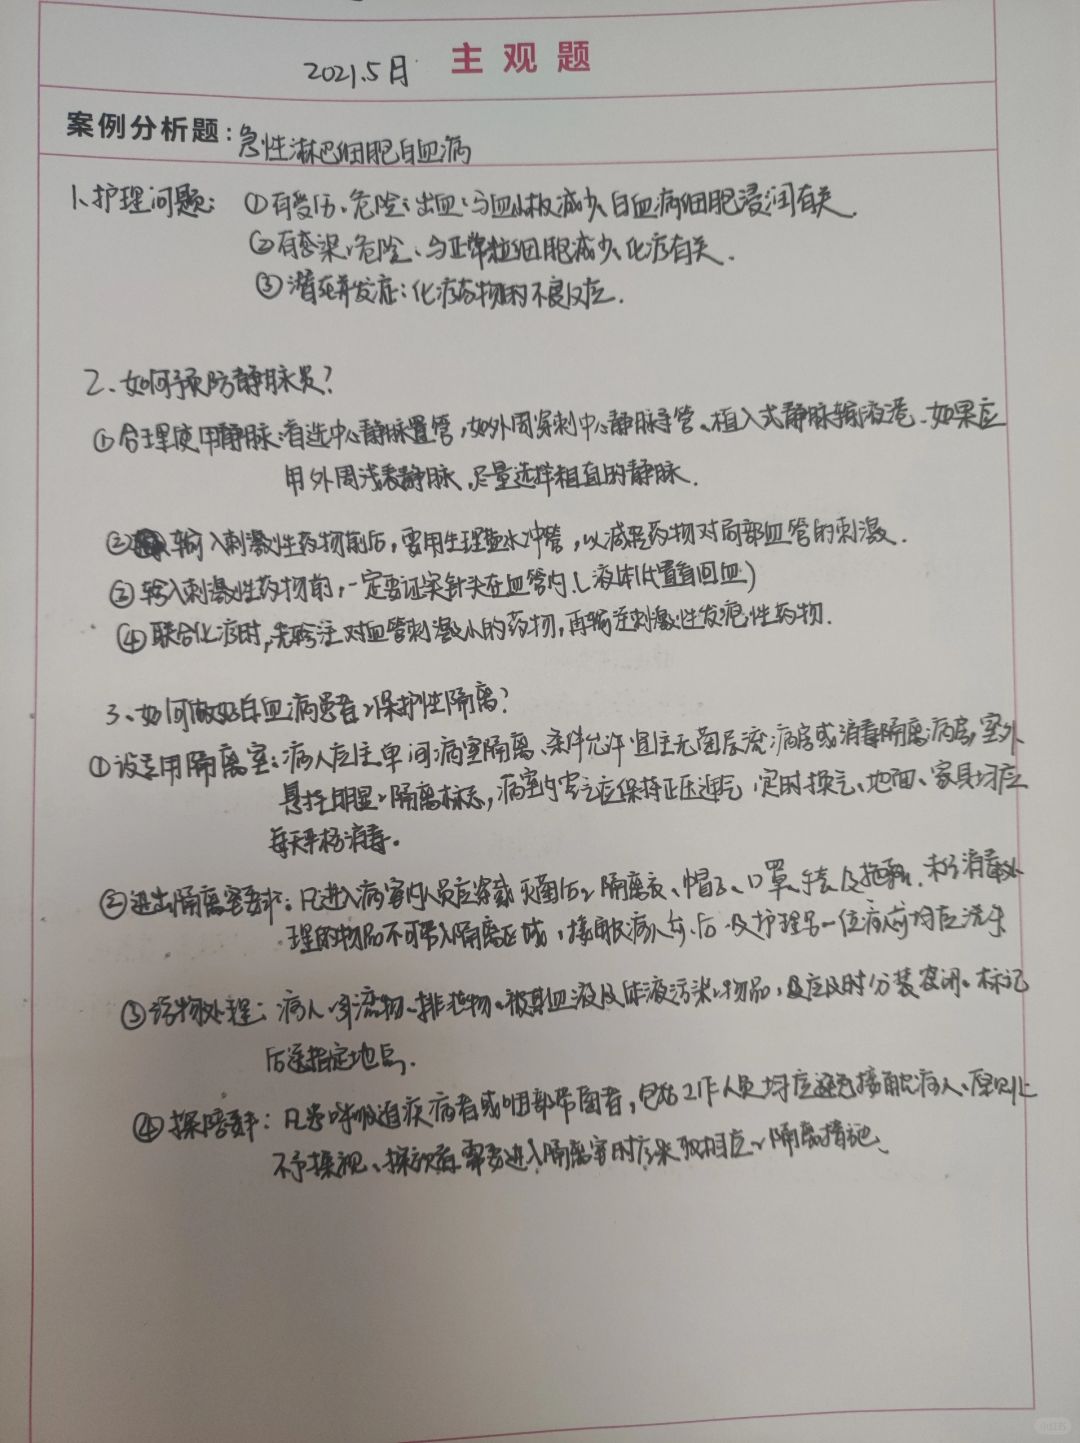 主观题
2021.5月
案例分析题:急性淋巴细胞白血病
1、护理问题: ①有受伤的危险:出血:与血小板减少、白血病细胞浸润有关.
②有感染的危险、与正常粒细胞减少、化疗有关.
③潜在并发症:化疗药物的不良反应.
2、如何预防静脉炎?
①合理使用静脉:首选中心静脉置管,如外周穿刺中心静脉导管、植入式静脉输液港.如果应
用外周浅表静脉,尽量选择粗直的静脉.
②输入刺激性药物前后,要用生理盐水冲管,以减轻药物对局部血管的刺激.
③输入刺激性药物前,一定要证实针头在血管内.(液体低置看回血)
④联合化疗时,先输注对血管刺激小的药物,再输注刺激性发疱性药物.
3、如何做好白血病患者的保护性隔离?
①设专用隔离室:病人应住单间病室隔离、条件允许宜住无菌层流病房或消毒隔离病房,室外
悬挂明显的隔离标志,病室内空气应保持正压通气,定时换气、地面、家具均应
每天严格消毒。
②进出隔离室要求:凡进入病室内人员应穿戴灭菌后的隔离衣、帽子、口罩、手套及拖鞋.未经消毒处
理的物品不可带入隔离区域,接触病人前、后及护理另一位病人前均应洗手
③污物处理:病人的引流物、排泄物、被其血液及体液污染的物品,应及时分装密闭、标记
后送指定地点.
④探陪要求:凡患呼吸道疾病者或咽部带菌者,包括工作人员均应避免接触病人、原则上
不予探视、探视者需要进入隔离室时应采取相应的隔离措施、